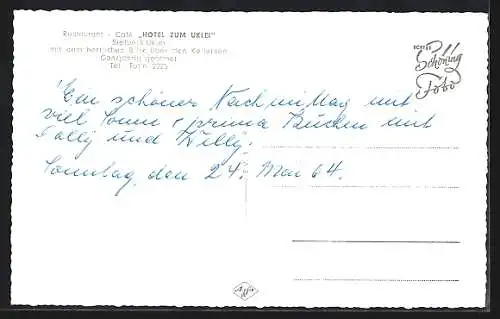 Restaurant - Café „HOTEL ZUM UKLEI"
Sielbeck-Uklei
mit dem herrlichen Blick über den Kellersee
Ganzjährig geöffnet
Tel. Eutin 2225
ECHTES
Schöning
Foto
Ein schöner Nachmittag mit
viel Sonne + prima Kuchen mit
und Willy.
Sonntag, den 24. Mai 64.